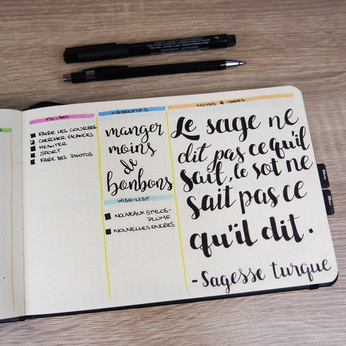 TO-DO
FAIRE LES COURSES
CHERCHER VACANCES
MÉDITER
SPORT
FAIRE DES PHOTOS
OBJECTIFS
manger
moins
de
bonbons
WISH-LIST
NOUVEAUX STYLOS-
PLUME
NOUVELLES ENCRES
NOTES & IDÉES
Le sage ne
dit pas ce qu'il
sait, le sot ne
sait pas ce
qu'il dit.
- Sagesse turque